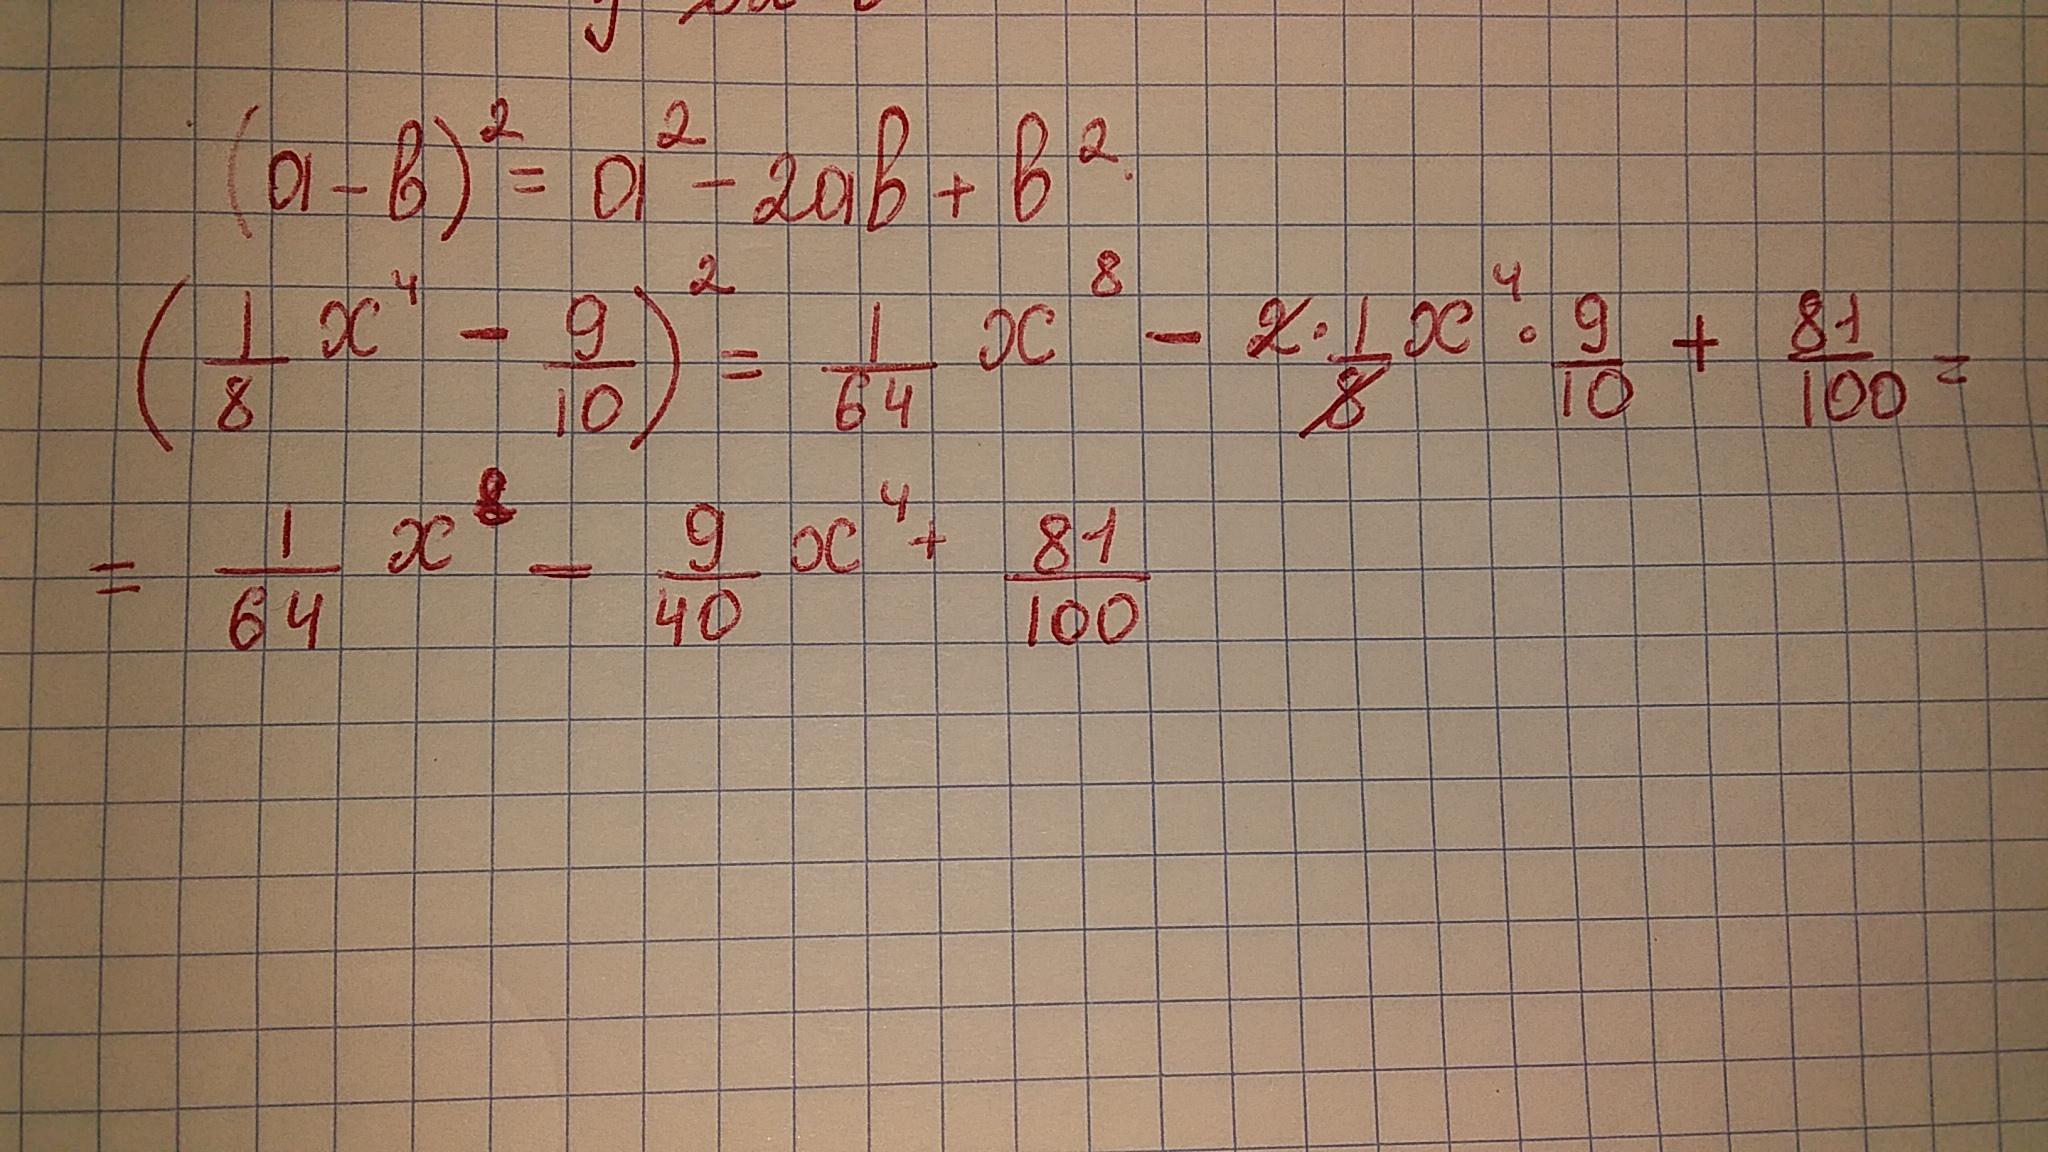 (a-b)² = a² - 2ab + b².
(1/8 x⁴ - 9/10)² = 1/64 x⁸ - 2·1/8 x⁴ · 9/10 + 81/100 =
= 1/64 x⁸ - 9/40 x⁴ + 81/100